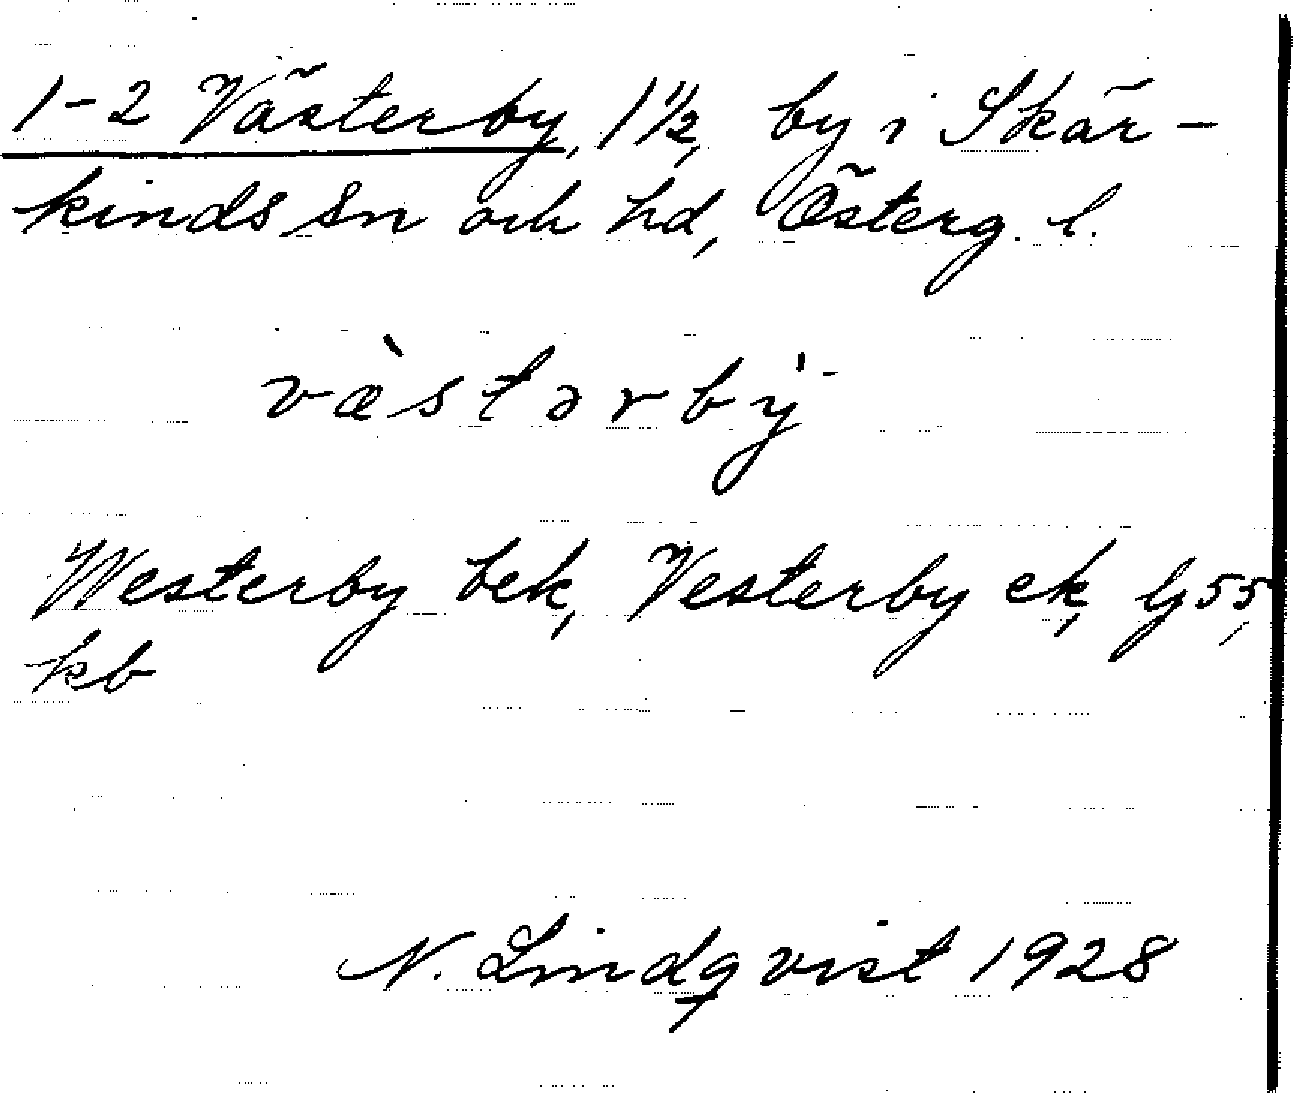 1-2 Västerby, 1 1/2, by i Skär-
kinds sn och hd, Österg. l.
væ̀stərby̍-
Westerby bek, Vesterby ek, Gj 55,
kb
N. Lindqvist 1928